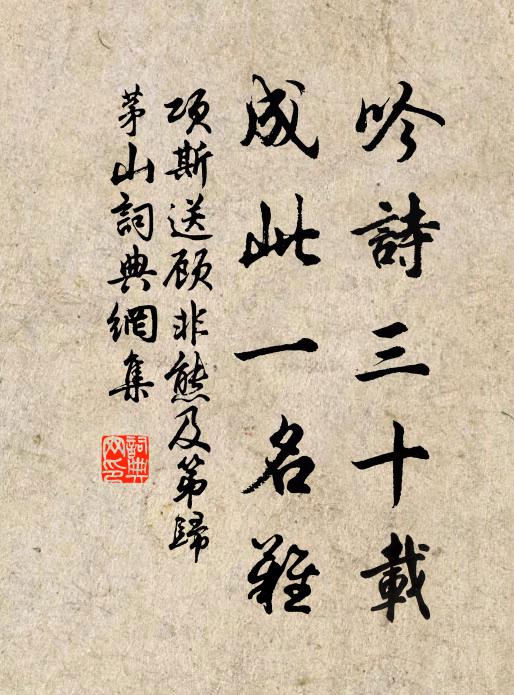 吟詩三十載
成此一名難
项斯送顾非熊及第歸
茅山詞典網集
詞典网印